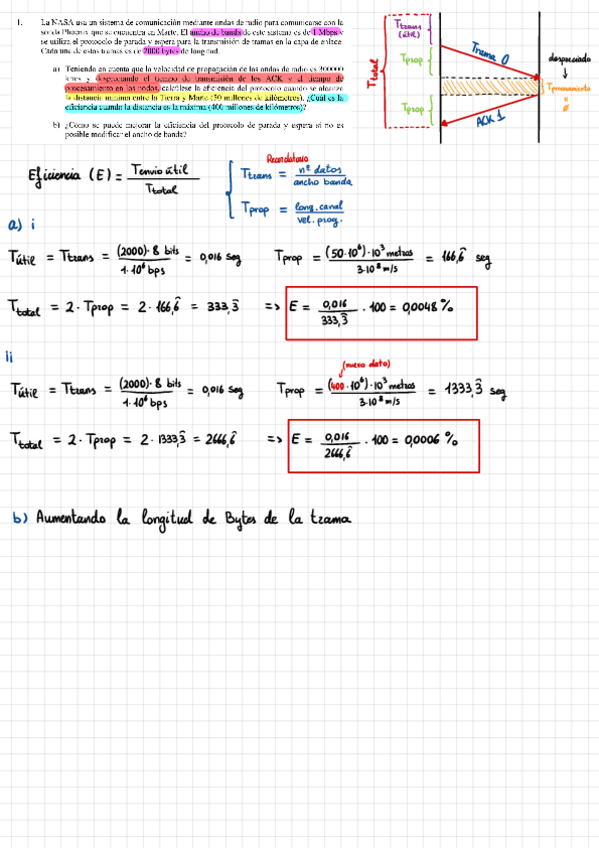 1. La NASA usa un sistema de comunicación mediante ondas de radio para comunicarse con la
sonda Phoenix que se encuentra en Marte. El ancho de banda de este sistema es de 1 Mbps y
se utiliza el protocolo de parada y espera para la transmisión de tramas en la capa de enlace.
Cada una de estas tramas es de 2000 bytes de longitud.
a) Teniendo en cuenta que la velocidad de propagación de las ondas de radio es 300000
km/s y despreciando el tiempo de transmisión de los ACK y el tiempo de
procesamiento en los nodos, calcúlese la eficiencia del protocolo cuando se alcanza
la distancia mínima entre la Tierra y Marte (50 millones de kilómetros). ¿Cuál es la
eficiencia cuando la distancia es la máxima (400 millones de kilómetros)?
b) ¿Cómo se puede mejorar la eficiencia del protocolo de parada y espera si no es
posible modificar el ancho de banda?
Ttotal
Ttrans
(útil)
Tprop
Tprop
Trama 0
ACK 1
despreciado
Tprocesamiento
Eficiencia (E) = Tenvío útil / Ttotal
Recordatorio
Ttrans = nº datos / ancho banda
Tprop = long. canal / vel. prop.
a) i
Tútil = Ttrans = (2000)·8 bits / 1·10⁶ bps = 0,016 seg
Tprop = (50·10⁶)·10³ metros / 3·10⁸ m/s = 166,6̂ seg
Ttotal = 2 · Tprop = 2 · 166,6̂ = 333,3̂ => E = 0,016 / 333,3̂ · 100 = 0,0048 %
ii
(nuevo dato)
Tútil = Ttrans = (2000)·8 bits / 1·10⁶ bps = 0,016 seg
Tprop = (400·10⁶)·10³ metros / 3·10⁸ m/s = 1333,3̂ seg
Ttotal = 2 · Tprop = 2 · 1333,3̂ = 2666,6̂ => E = 0,016 / 2666,6̂ · 100 = 0,0006 %
b) Aumentando la longitud de Bytes de la trama